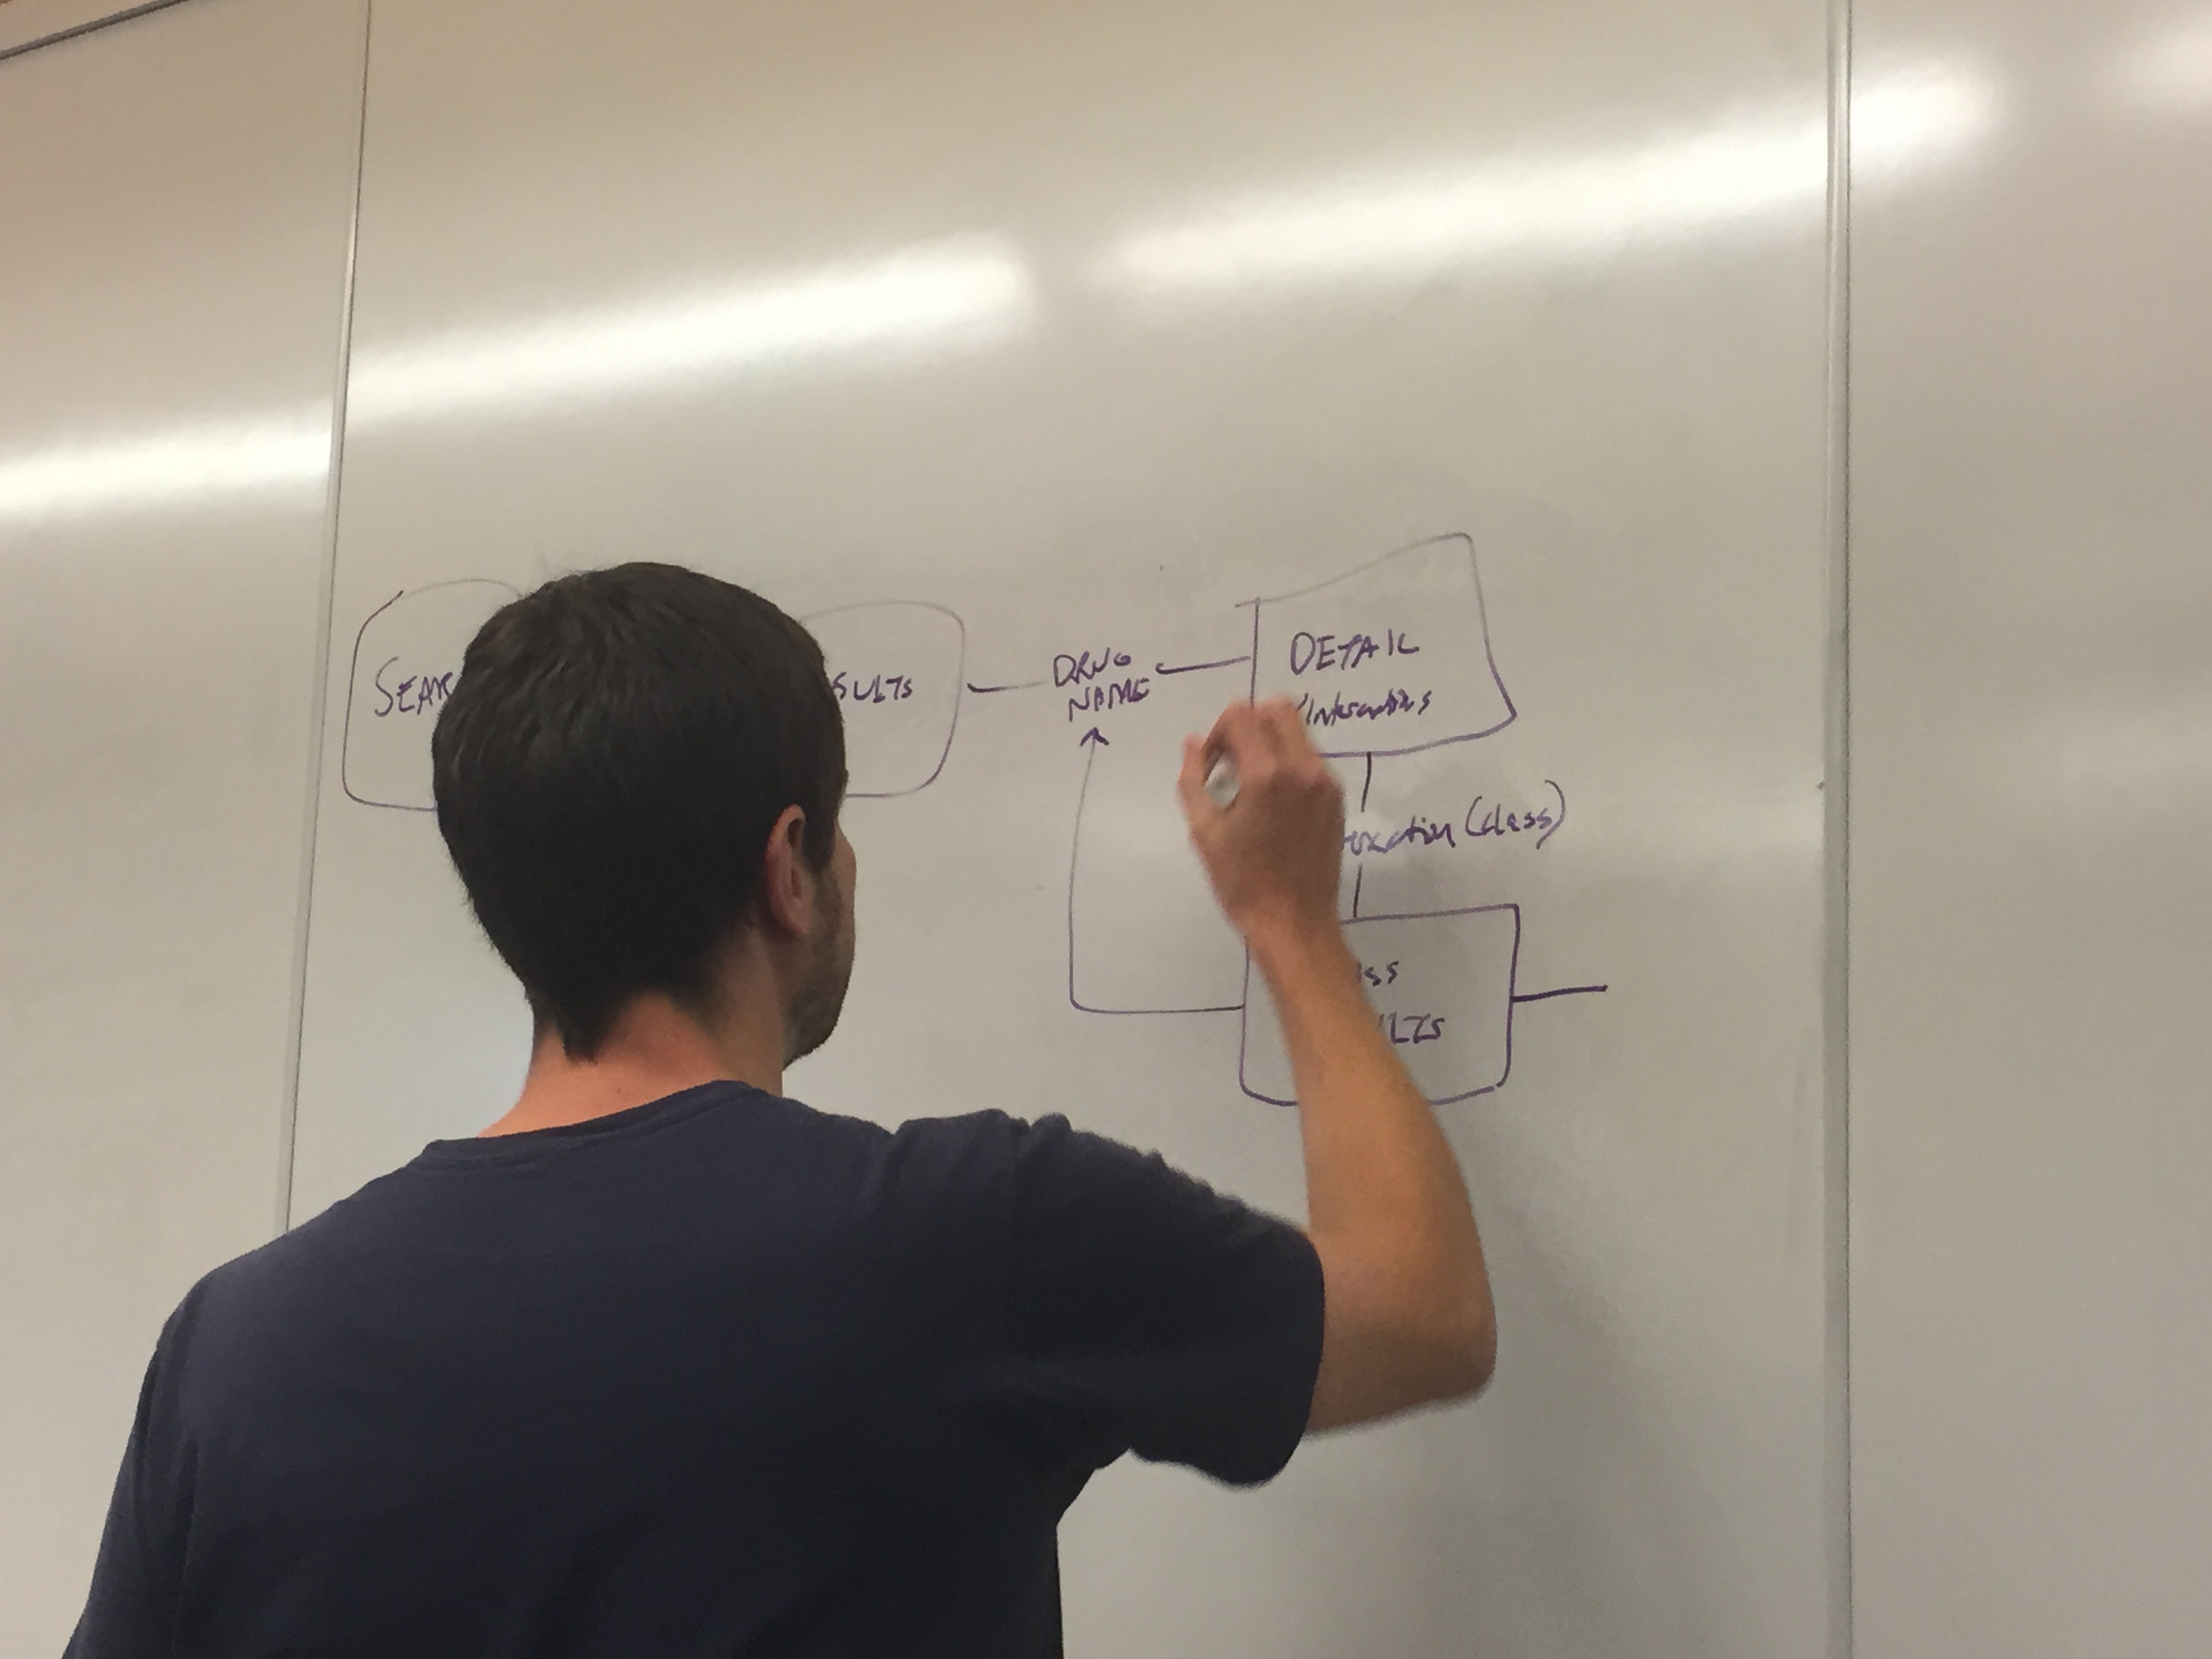 SEARC
SULTS
DRUG
NAME
DETAIL
/Interactions
raction (class)
ss
LTS